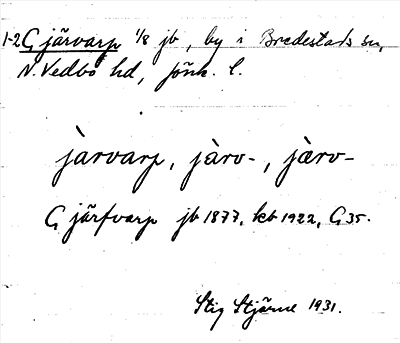 1-2 Gjärvarp 1/8 jb, by i Bredestads sn,
N. Vedbo hd, jönk. l.
jàrvarp, jàrv-, jàrv-
Gjärfvarp jb 1877, kb 1922, G 35.
Stig Stjärne 1931.